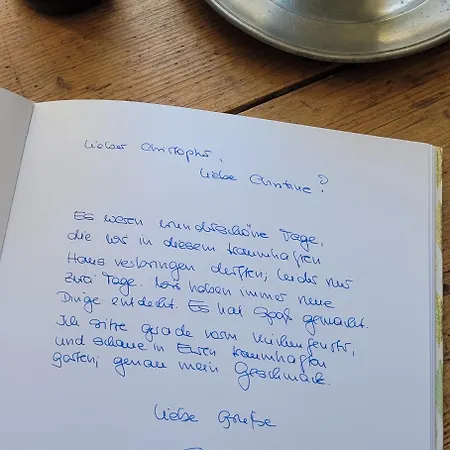 Lieber Christopher,
liebe Christine?
Es waren wunderschöne Tage,
die wir in diesem traumhaften
Haus verbringen durften, leider nur
zwei Tage. Wir haben immer neue
Dinge entdeckt. Es hat Spaß gemacht.
Ich sitze gerade vorm Küchenfenster,
und schaue in Euren traumhaften
Garten, genau mein Geschmack.
Liebe Grüße